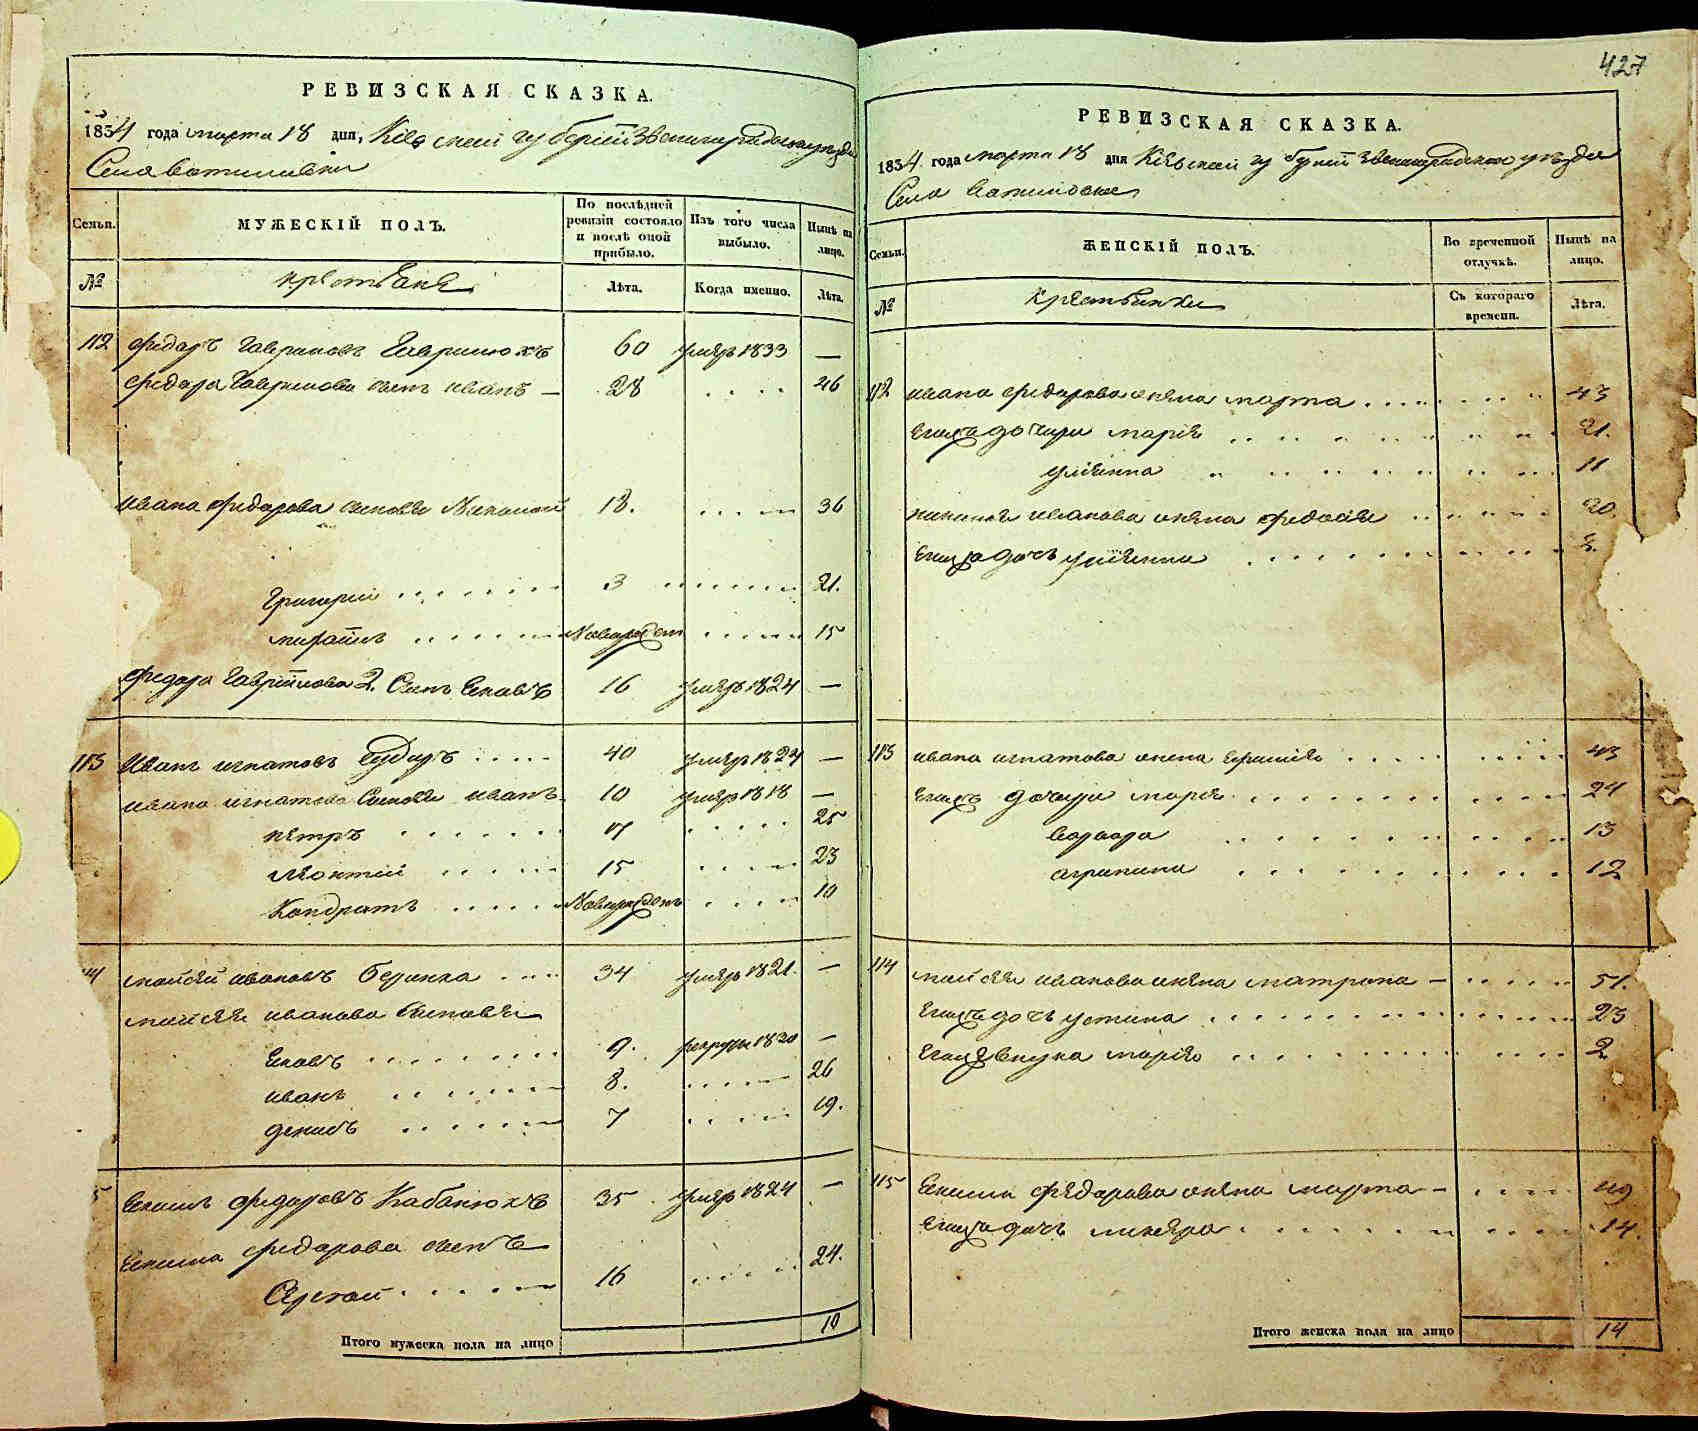 РЕВИЗСКАЯ СКАЗКА.
1834 года марта 18 дня, Кіевской губерніи Звенигородского уезда
Села Ватилевки
Семьи.
МУЖЕСКІЙ ПОЛЪ.
По послѣдней ревизіи состояло и послѣ оной прибыло.
Изъ того числа выбыло.
Нынѣ на лицо.
№
крестьяне
Лѣта.
Когда именно.
Лѣта.
112 Федоръ Гавриловъ 60 умеръ 1833 —
Федора Гаврилова сынъ Иванъ — 28 46
Ивана Федорова сыновья Николай 18. 36
Григорій 3 21.
15
Федора Гаврилова 2. Сынъ 16 умеръ 1824 —
113 Иванъ Игнатовъ 40 умеръ 1824 —
Ивана Игнатова Сыновья Иванъ 10 умеръ 1818 —
Петръ 25
Леонтій 15 23
Кондратъ Новорожденъ 10
Мойсей Ивановъ 34 умеръ 1821. —
Мойсея Иванова Сыновья
Яковъ 9. рекруты 1820 —
Иванъ 8. 26
Денисъ 7 19.
Федоровъ Кабанюкъ 35 умеръ 1824 —
Федорова сынъ
Сергей 16 24.
Итого мужеска пола на лицо 10
427
РЕВИЗСКАЯ СКАЗКА.
1834. года марта 18 дня Кіевской губерніи Звенигородского уезда
Села
Семьи.
ЖЕНСКІЙ ПОЛЪ.
Во временной отлучкѣ.
Нынѣ на лицо.
№
Крестьянки
Съ котораго времени.
Лѣта.
112 Ивана Федорова жена Марта 43
Егожъ дочери Марія 21.
Уліянна 11
Иванова жена Федосія 20.
Егожъ дочь Уліянна
113 Ивана Игнатова жена 43
Егожъ дочери Марія 24
Варвара 13
Агрипина 12
114 Мойсея Иванова жена Матрона — 51.
Егожъ дочь Устина 23
Егожъ внука Марія 2
115 Федорова жена Марта — 49
Егожъ дочь 14.
Итого женска пола на лицо 14